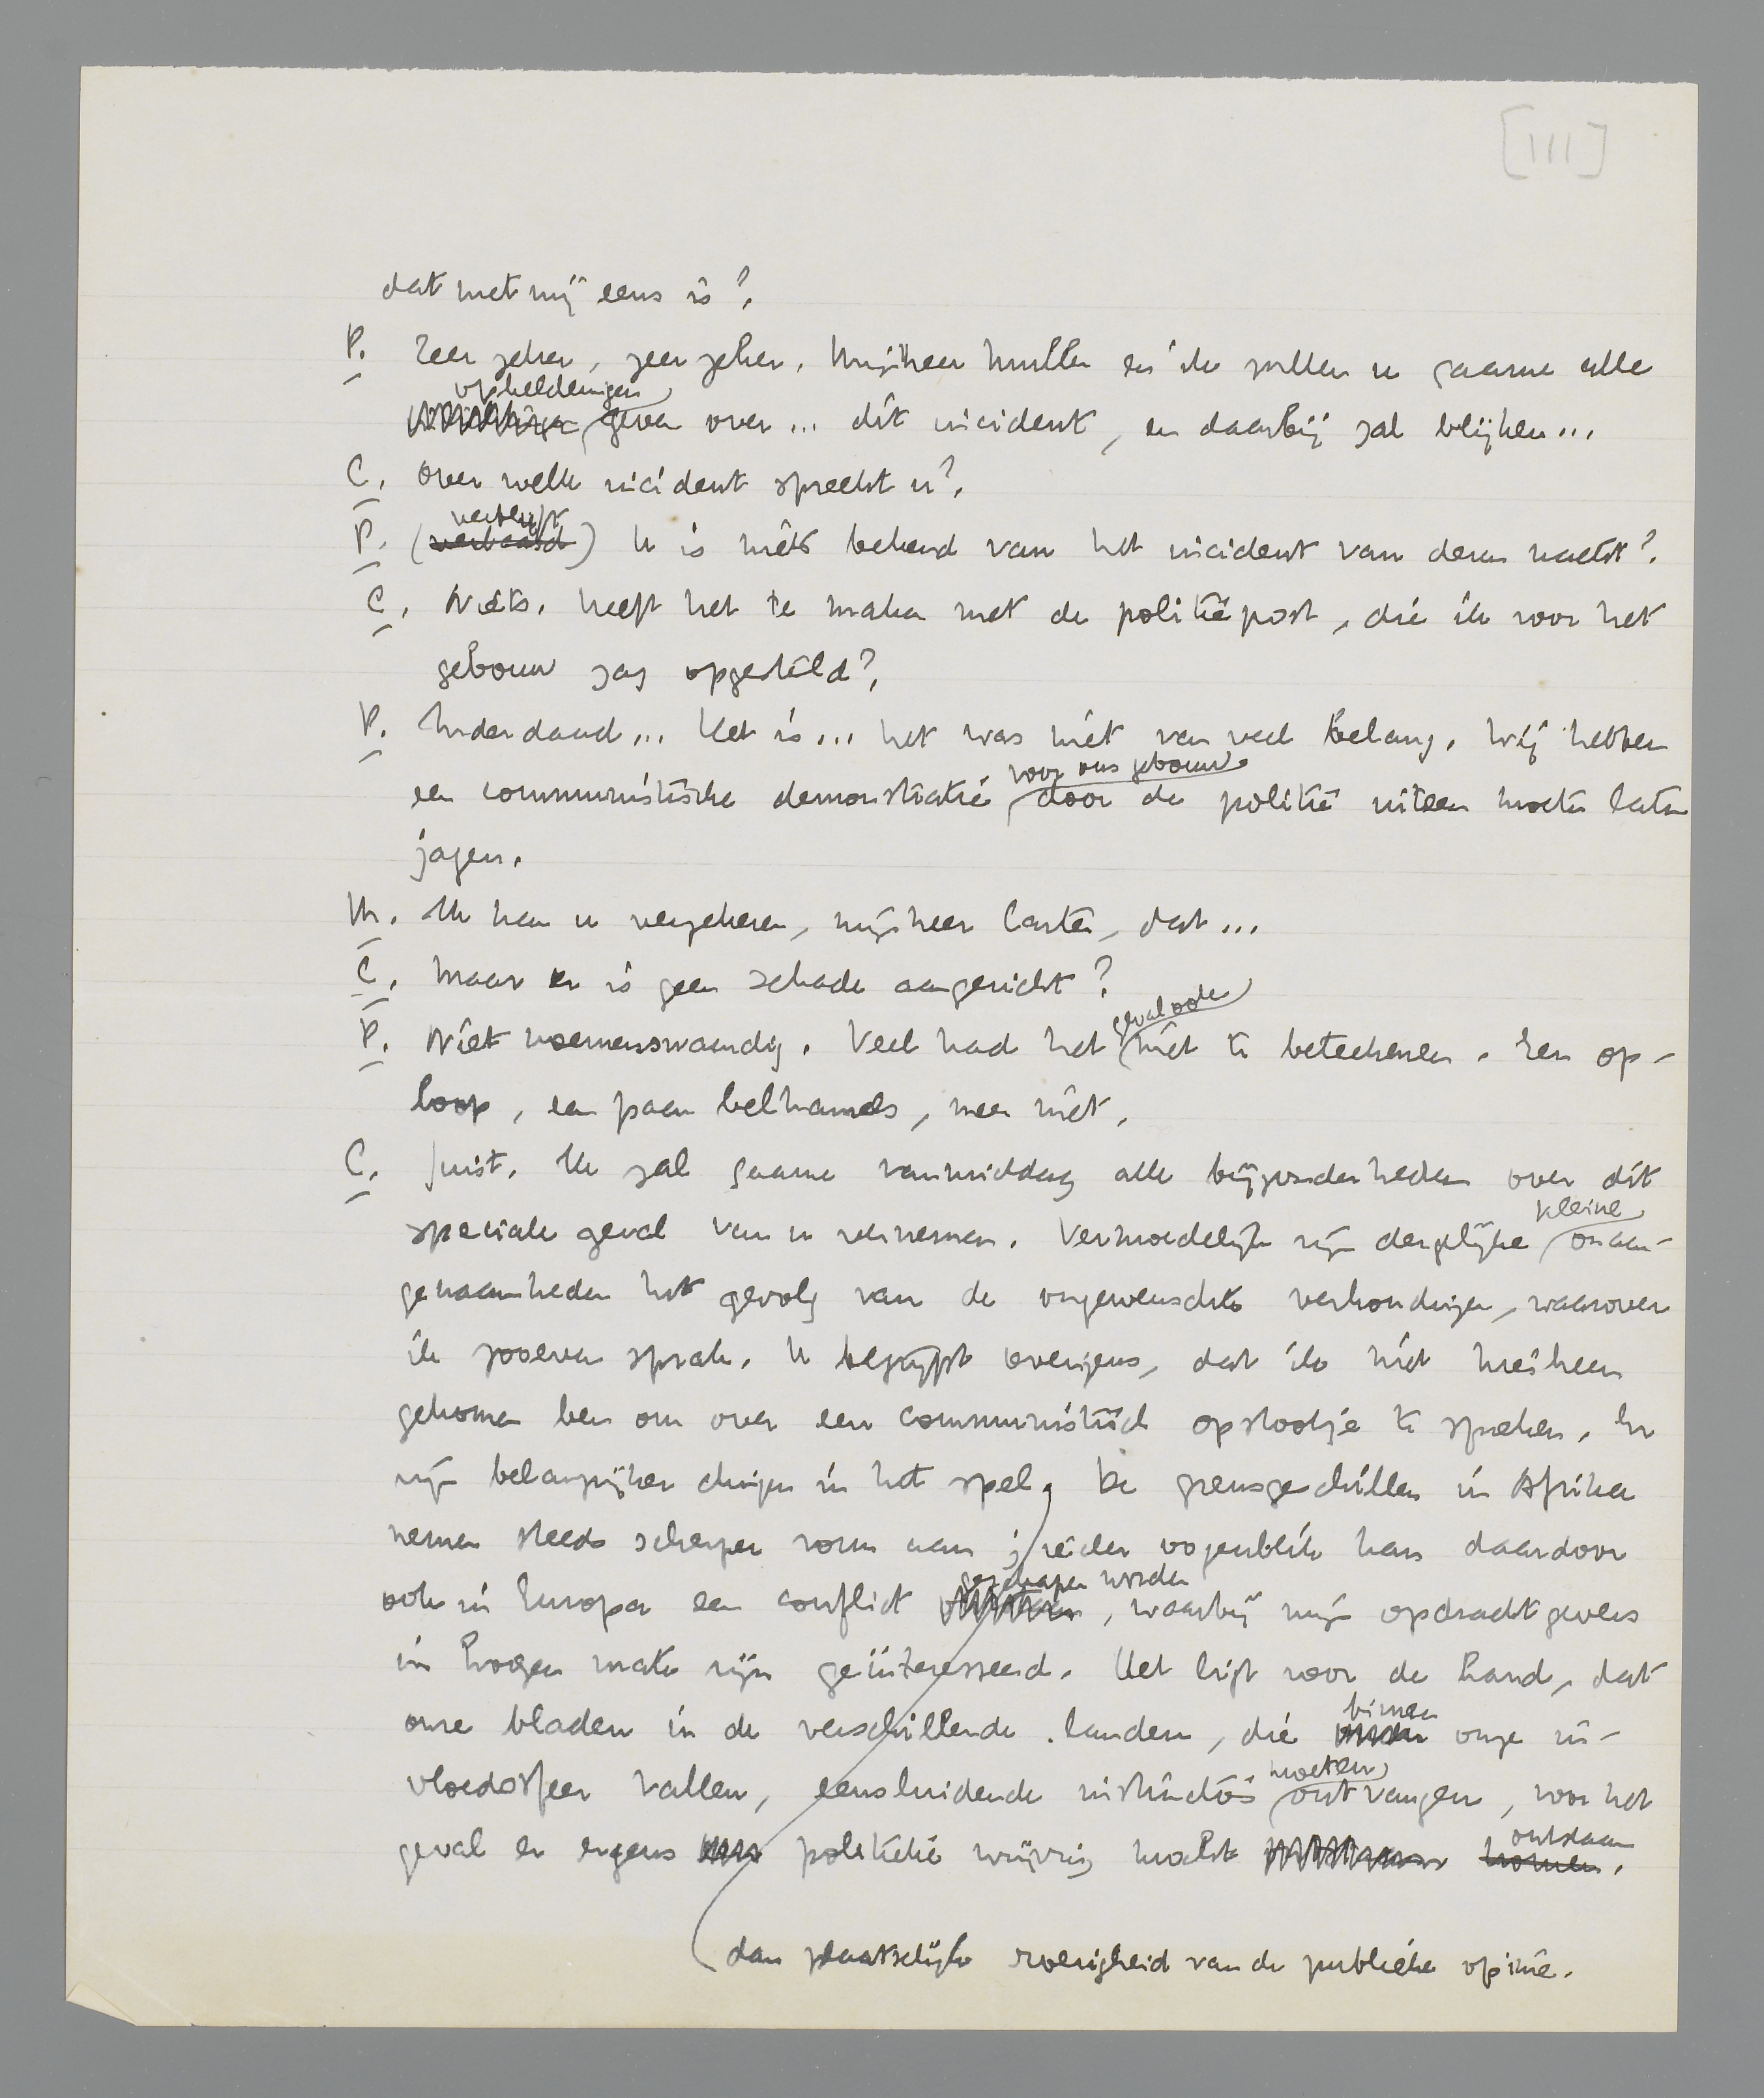 [III]
dat met mij eens is?
P. Zeer zeker, zeer zeker. Mijnheer Muller en ik zullen u gaarne alle
ophelderingen
geven over... dit incident, en daarbij zal blijken...
C. Over welk incident spreekt u?
verbluft
P. (verbaasd) U is niets bekend van het incident van dezen nacht?
C. Niets. Heeft het te maken met de politiepost, die ik voor het
gebouw zag opgesteld?
P. Inderdaad... Het is... het was niet van veel belang. Wij hebben
voor ons gebouw
een communistische demonstratie door de politie uiteen moeten laten
jagen.
M. Ik kan u verzekeren, mijnheer Carter, dat...
C. Maar er is geen schade aangericht?
geval ook
P. Niet noemenswaardig. Veel had het niet te beteekenen. Een op-
loop, een paar belhamels, meer niet.
C. Juist. Ik zal gaarne vanmiddag alle bijzonderheden over dit
kleine
speciale geval van u vernemen. Vermoedelijk zijn dergelijke onaan-
genaamheden het gevolg van de ongewenschte verhoudingen, waarover
ik zooeven sprak. U begrijpt overigens, dat ik niet hierheen
gekomen ben om over een communistisch opstootje te spreken. Er
zijn belangrijker dingen in het spel, De grensgeschillen in Afrika
nemen steeds scherper vorm aan; ieder oogenblik kan daardoor
geschapen worden
ook in Europa een conflict , waarbij mijn opdrachtgevers
in hooge mate zijn geïnteresseerd. Het ligt voor de hand, dat
binnen
onze bladen in de verschillende landen, die onze in-
moeten
vloedsfeer vallen, eensluidende instructies ontvangen, voor het
ontstaan
geval er ergens politieke wrijving mocht komen.
dan plaatselijke roerigheid van de publieke opinie.